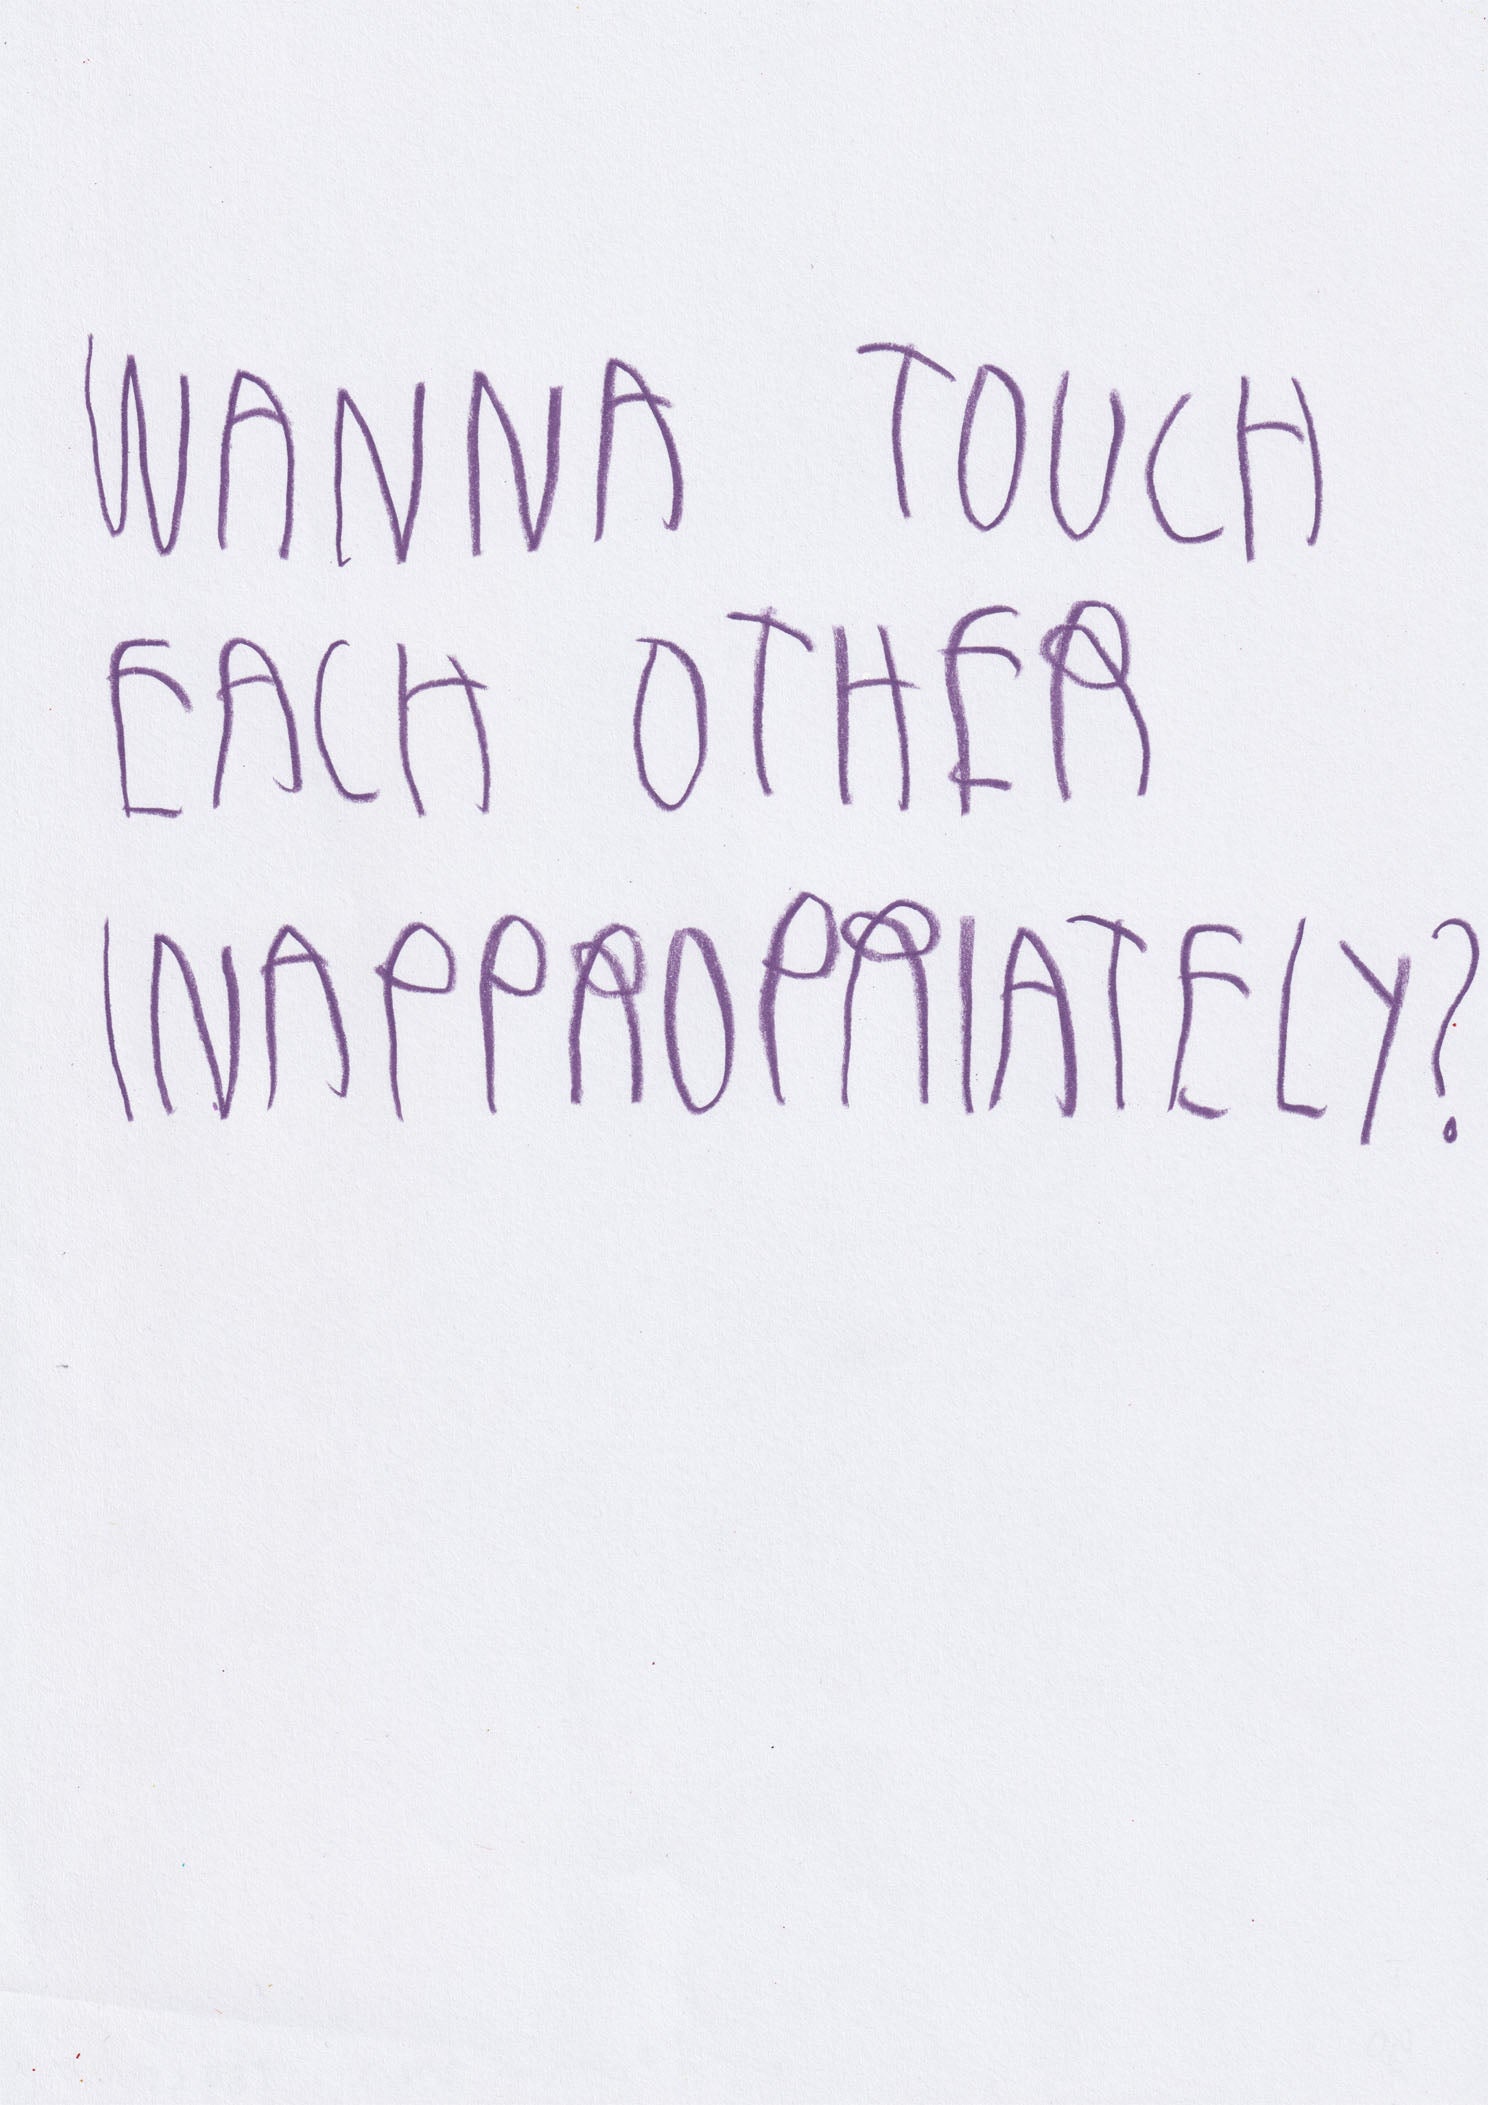 WANNA TOUCH
EACH OTHER
INAPPROPRIATELY?